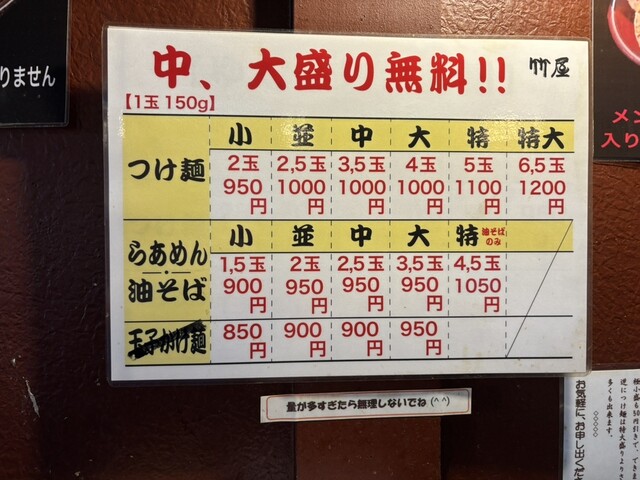 りません
中、大盛り無料!! 竹屋
【1玉 150g】
小 並 中 大 特 特大
つけ麺 2玉 2,5玉 3,5玉 4玉 5玉 6,5玉
950円 1000円 1000円 1000円 1100円 1200円
小 並 中 大 特 油そばのみ
らあめん・油そば 1,5玉 2玉 2,5玉 3,5玉 4,5玉
900円 950円 950円 950円 1050円
玉子かけ麺 850円 900円 900円 950円
量が多すぎたら無理しないでね (^ ^)
メン
入り
逆につけ麺は特大盛りより
多くも出来ます。
◇◇◇◇◇
お気軽に、お申し出くだ